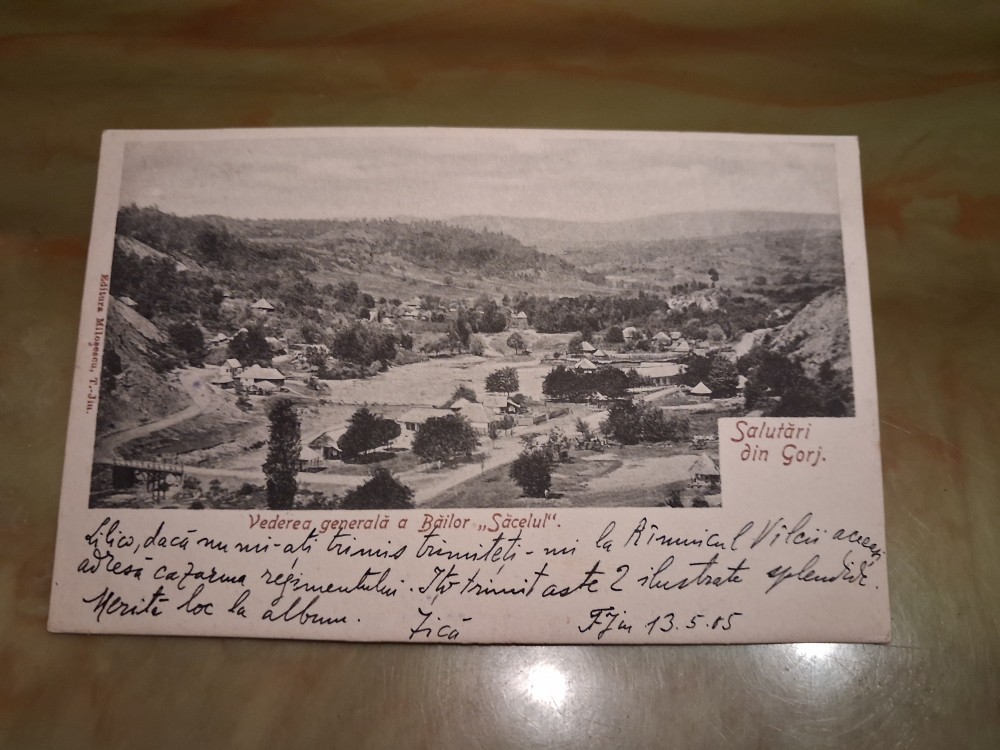 Editura Miloșescu, T.-Jiu.
Salutări
din Gorj.
Vederea generală a Băilor „Săcelul“.
Lilico, dacă nu mi-ați trimis trimiteți-mi la Rîmnicul Vilcii aceeași
adresă cazarma regimentului. Iți trimit aste 2 ilustrate splendide.
Merită loc la album.
Jică
13.5.05